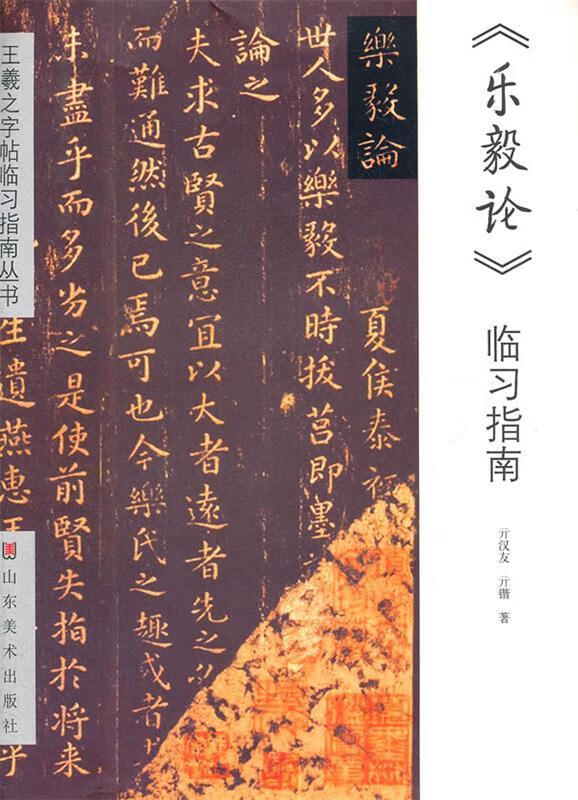 《乐毅论》
临习指南
亓汉友 亓锴 著
樂毅論
夏侯泰初
世人多以樂毅不時拔莒即墨
論之
夫求古賢之意宜以大者遠者先之必
而難通然後已焉可也今樂氏之趣或者其
未盡乎而多劣之是使前賢失指於將来
生遺燕惠王
乎
王羲之字帖临习指南丛书
山东美术出版社